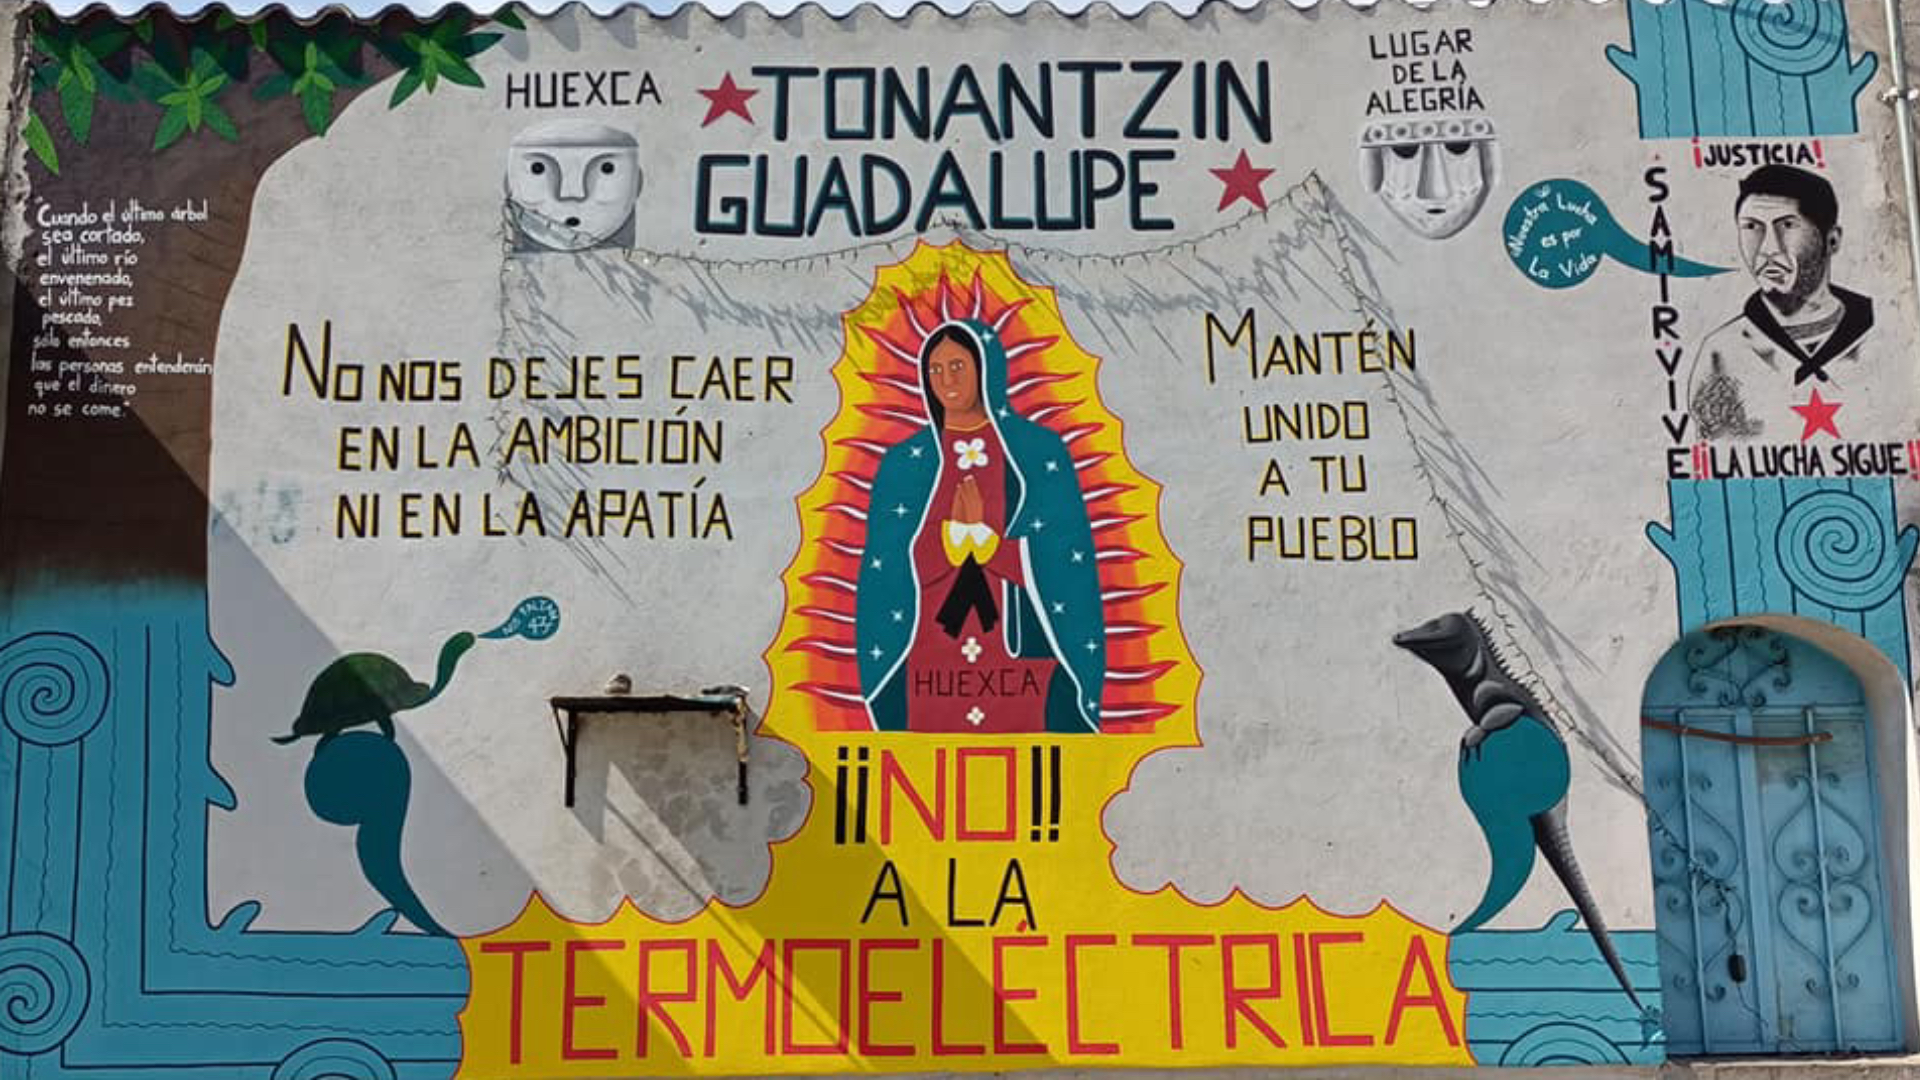 HUEXCA
TONANTZIN
GUADALUPE
LUGAR
DE LA
ALEGRÍA
"Cuando el último árbol
sea cortado,
el último río
envenenado,
el último pez
pescado,
sólo entonces
las personas entenderán
que el dinero
no se come."
No NOS DEJES CAER
EN LA AMBICIÓN
NI EN LA APATÍA
MANTÉN
UNIDO
A TU
PUEBLO
¡JUSTICIA!
SAMIR VIVE
Nuestra Lucha
es por
La Vida
¡¡LA LUCHA SIGUE!!
NOS FALTAN
43
HUEXCA
¡¡NO!!
A LA
TERMOELÉCTRICA